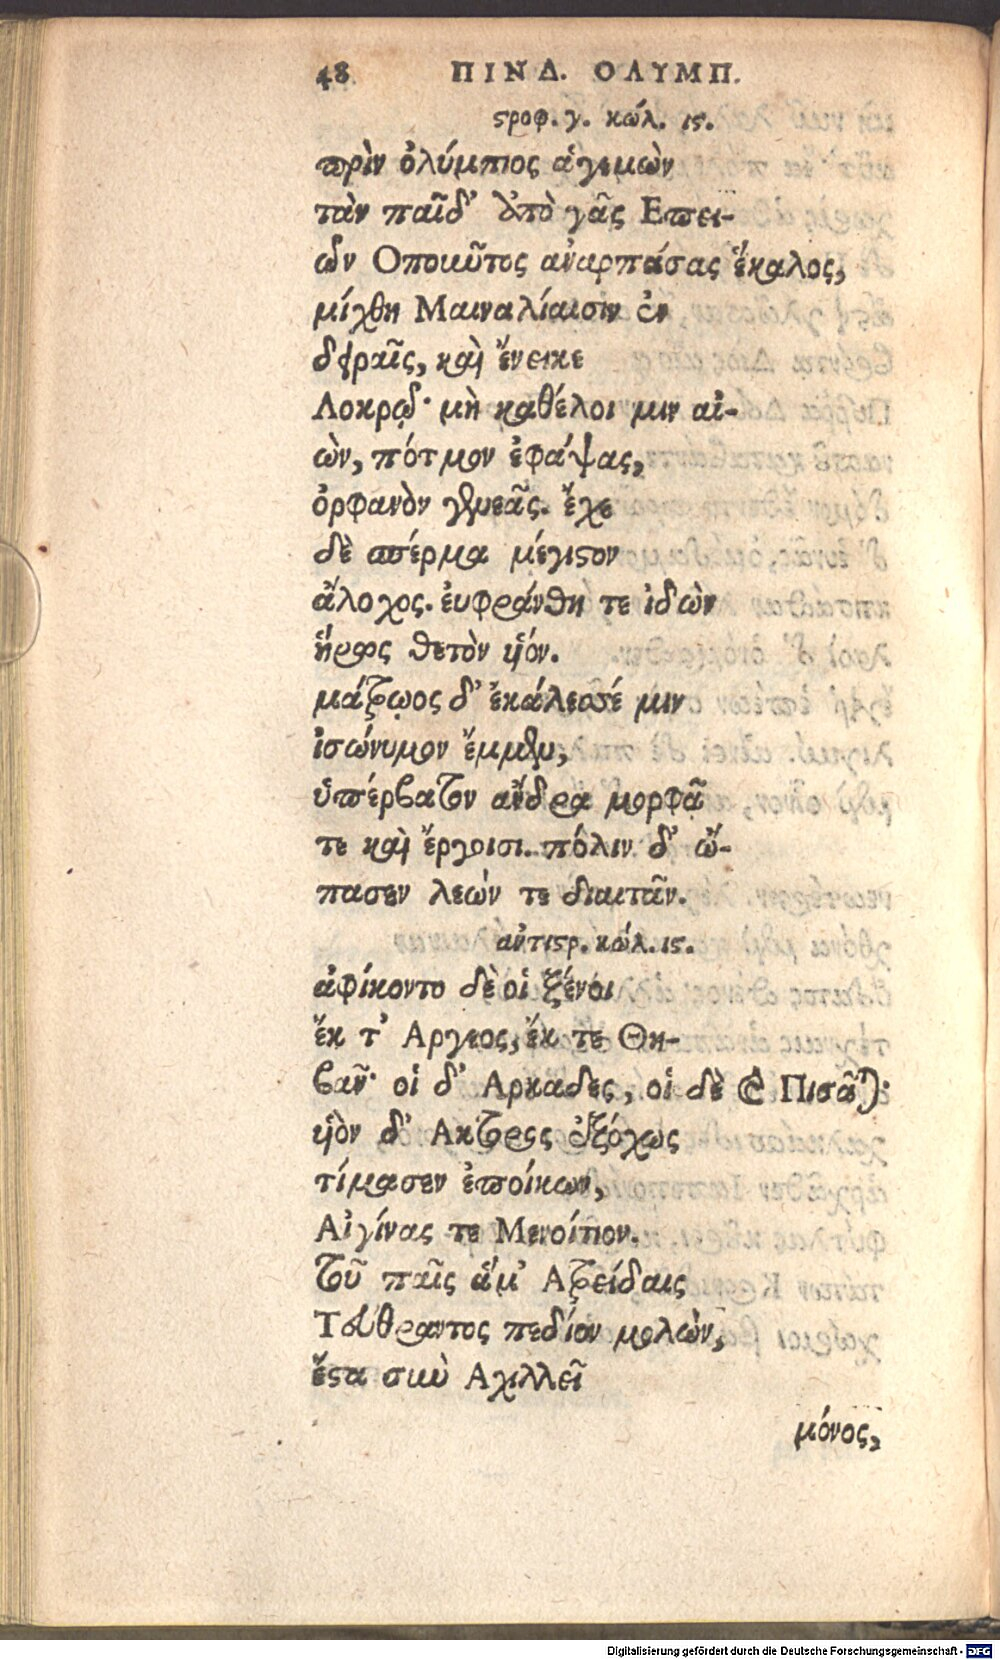 48 ΠΙΝΔ. ΟΛΥΜΠ.
στροφ. γ. κώλ. ις.
πρὶν ὀλύμπιος ἁγεμὼν
τὰν παῖδ' ἀπὸ γᾶς Επει-
ῶν Οποιῦτος ἀναρπάσας ἕκαλος,
μίχθη Μαιναλίαισιν ἐν
δειραῖς, καὶ ἔνεικε
Λοκρῷ· μὴ καθέλοι μιν αἰ-
ὼν, πότμον ἐφάψας,
ὀρφανὸν γενεᾶς. ἔχε
δὲ σπέρμα μέγιστον
ἄλοχος. ἐυφράνθη τε ἰδὼν
ἥρως θετὸν υἱόν.
μάτρωος δ' ἐκάλεσέ μιν
ἰσώνυμον ἔμμεν,
ὑπέρβατον ἄνδρα μορφᾷ
τε καὶ ἔργοισι. πόλιν δ' ὤ-
πασεν λεών τε διαιτᾶν.
ἀντιστρ. κώλ. ις.
ἀφίκοντο δὲ οἱ ξένοι
ἔκ τ' Αργεος, ἔκ τε Θη-
βᾶν· οἱ δ' Αρκαδες, οἱ δὲ καὶ Πισᾶται·
υἱὸν δ' Ακτορος ἐξόχως
τίμασεν ἐποίκων,
Αἰγίνας τε Μενοίτιον.
τοῦ παῖς ἅμ' Ατρείδαις
Τεύθραντος πεδίον μολὼν,
ἔστα σιωὺ Αχιλλεῖ
μόνος,
Digitalisierung gefördert durch die Deutsche Forschungsgemeinschaft - DFG